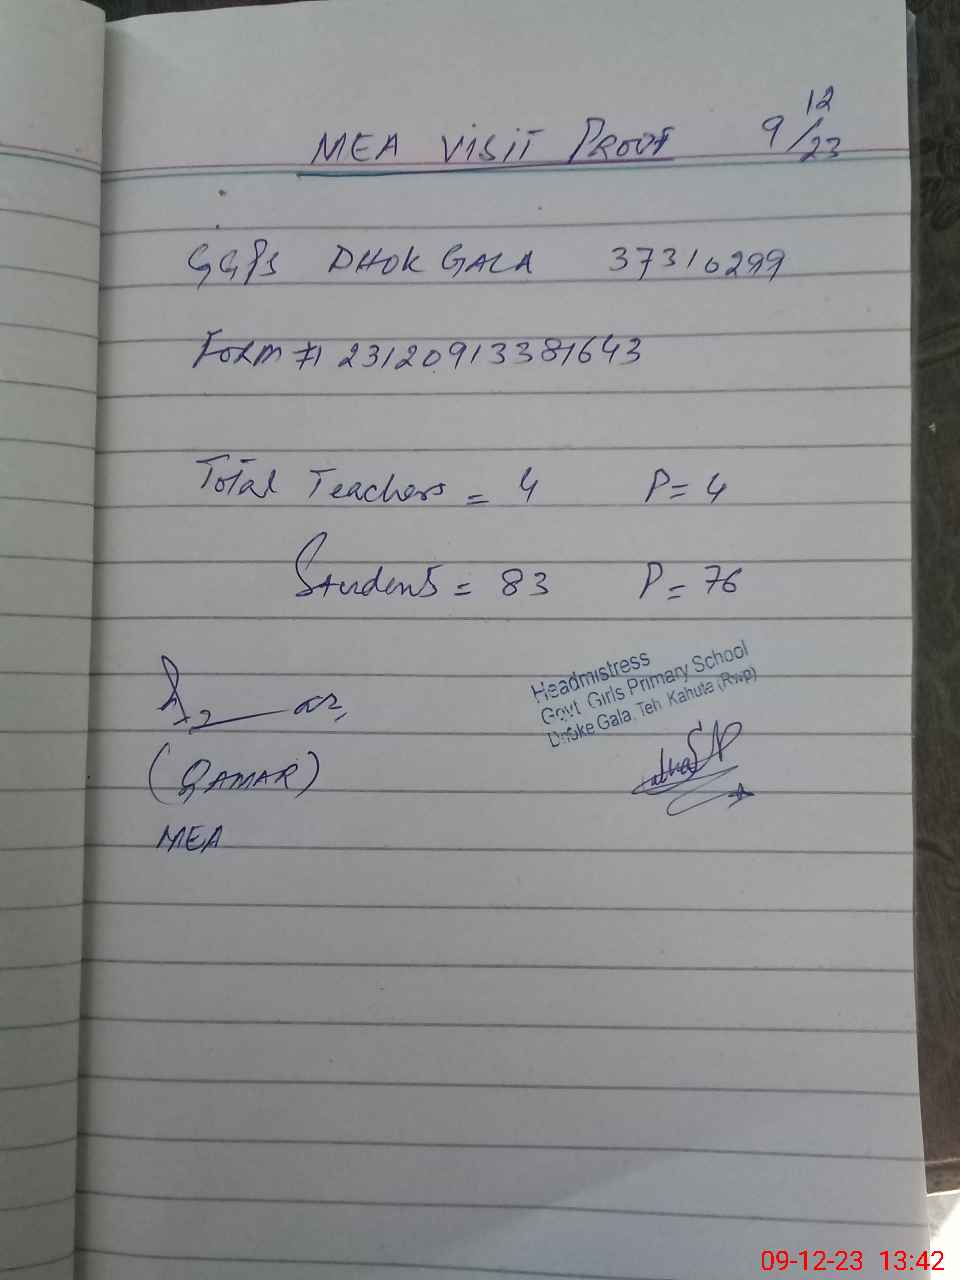 MEA VISIT PROOF 9/12/23
GGPS DHOK GALA 37310299
FORM # 23120913381643
Total Teachers = 4 P = 4
Students = 83 P = 76
Headmistress
Govt. Girls Primary School
Dhoke Gala, Teh Kahuta (Rwp)
(QAMAR)
MEA
09-12-23 13:42